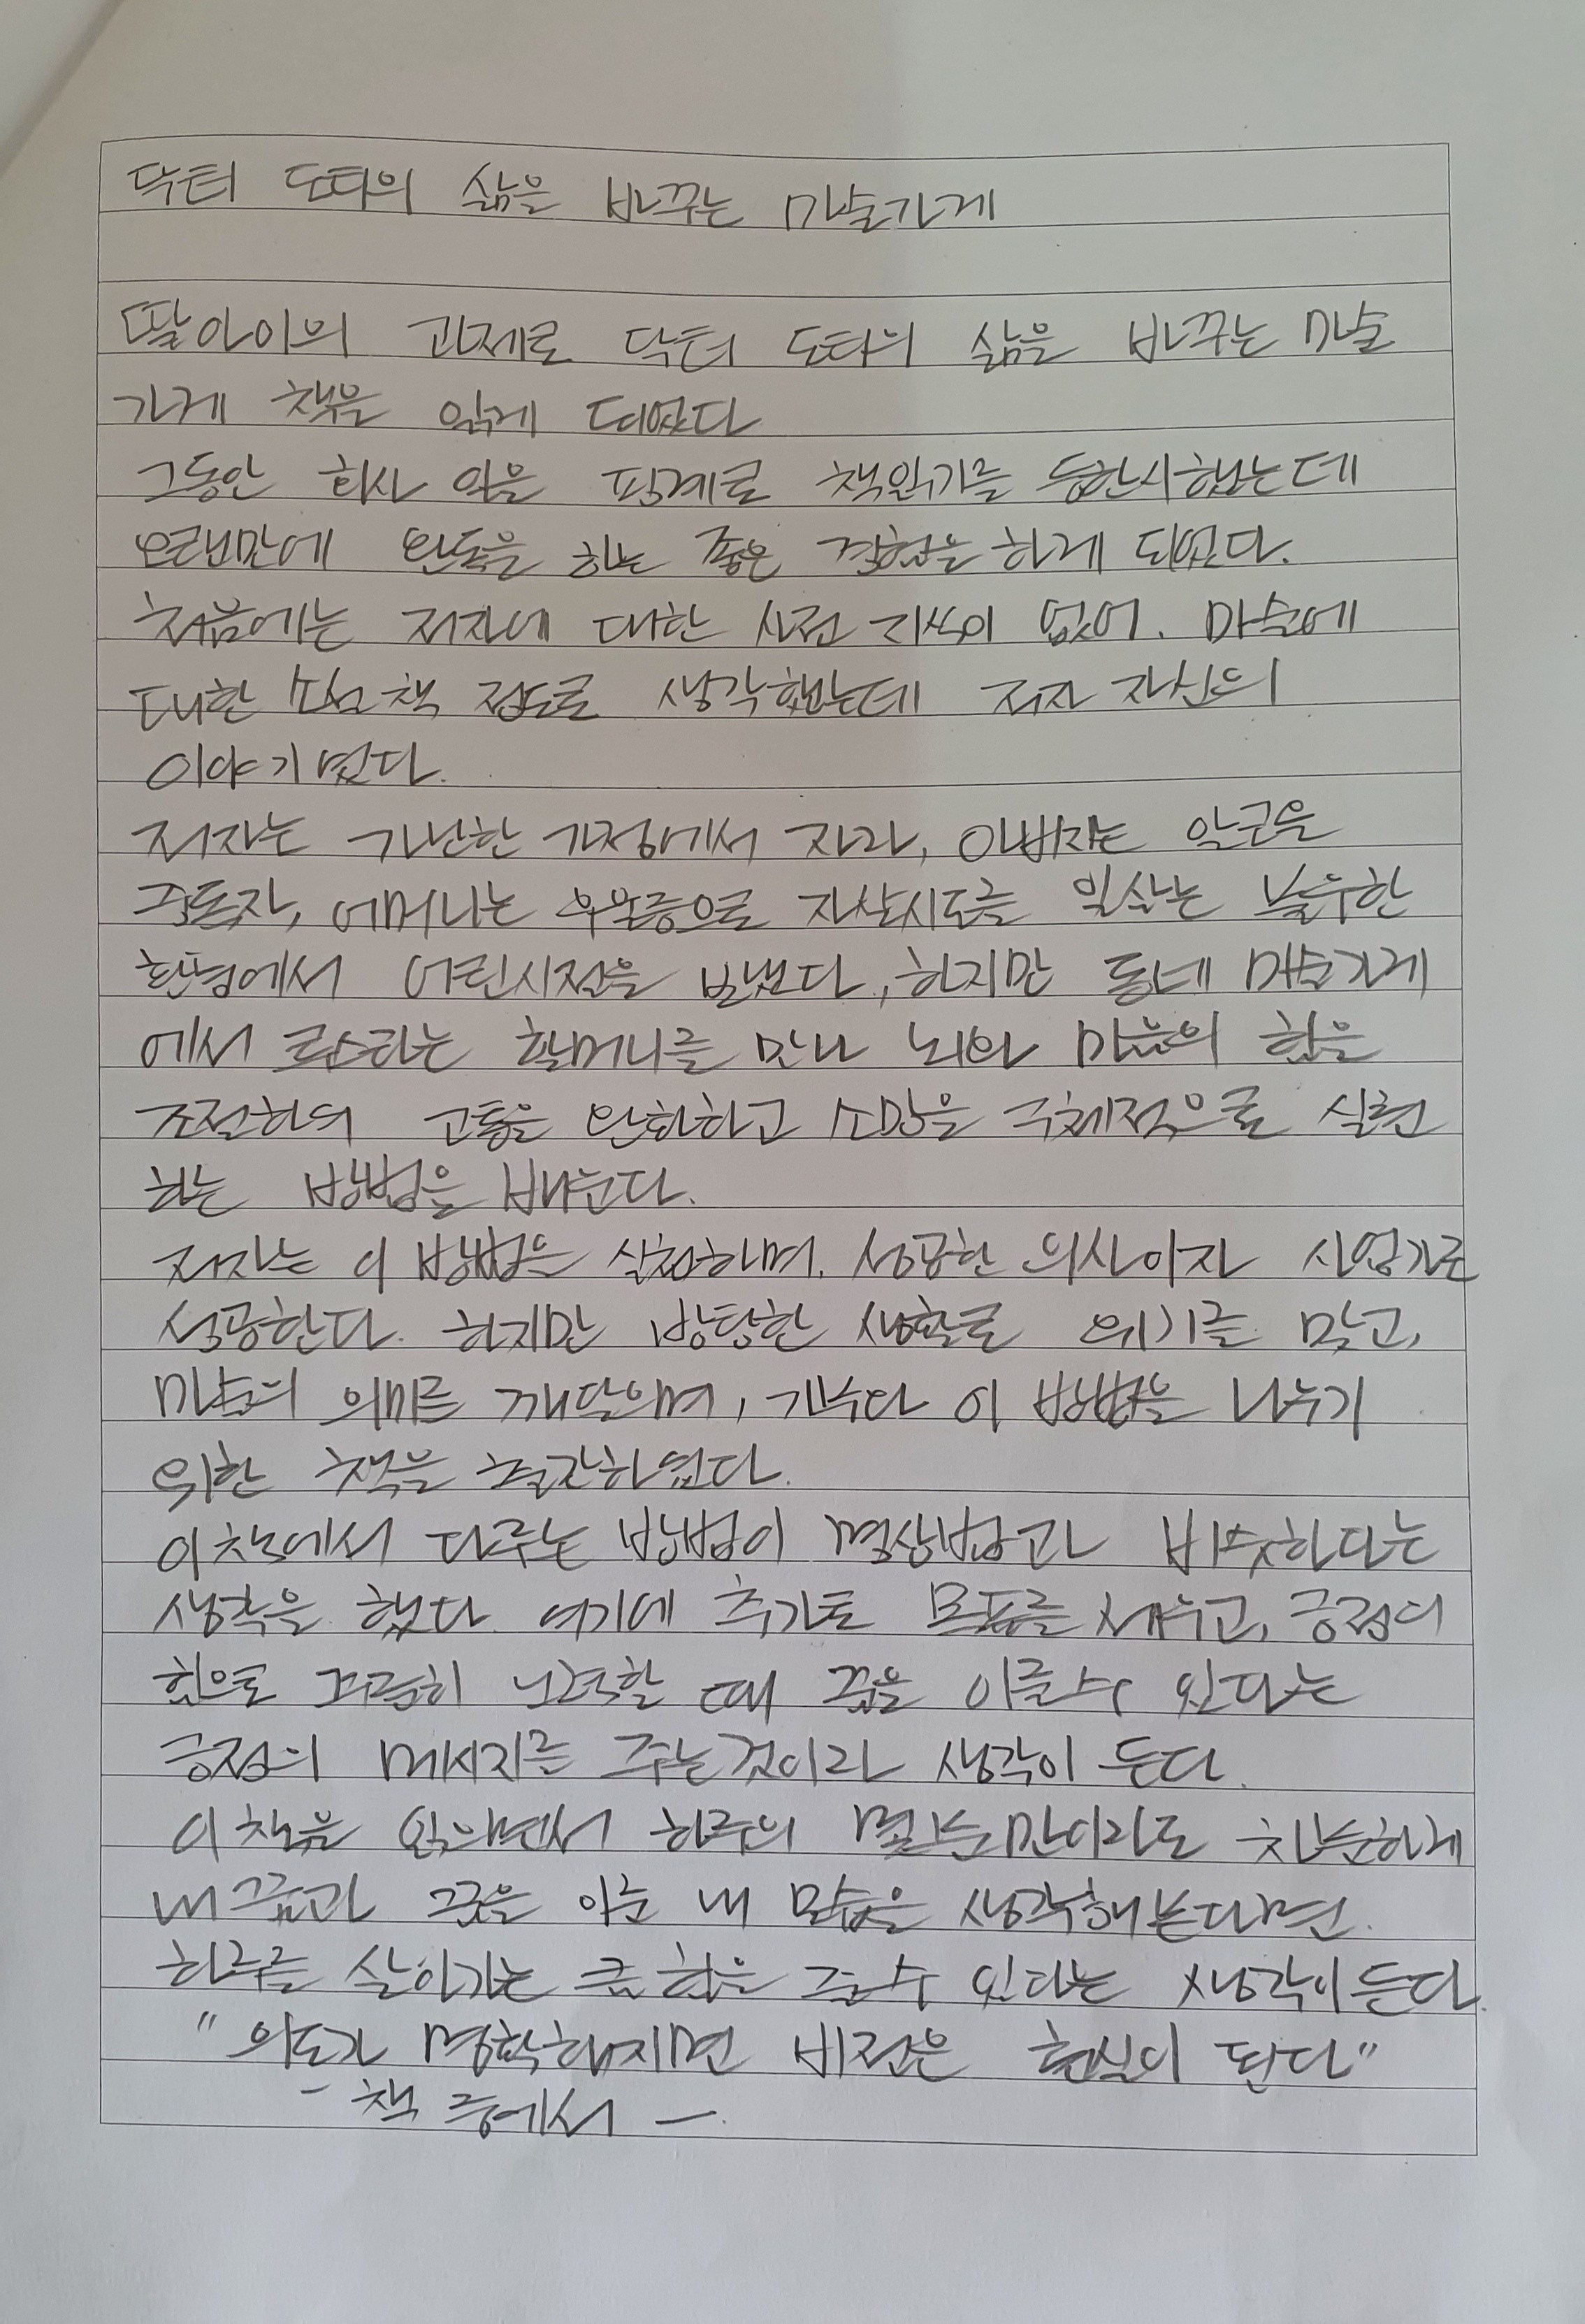 닥터 도티의 삶을 바꾸는 마술가게
딸아이의 과제로 닥터 도티의 삶을 바꾸는 마술
가게 책을 읽게 되었다
그동안 회사 일을 핑계로 책읽기를 등한시했는데
오랜만에 완독을 하는 좋은 경험을 하게 되었다.
처음에는 저자에 대한 사전 지식이 없어. 마술에
대한 소설책 정도로 생각했는데 저자 자신의
이야기였다.
저자는 가난한 가정에서 자라, 아버지는 알코올
중독자, 어머니는 우울증으로 자살시도를 일삼는 불우한
환경에서 어린시절을 보냈다, 하지만 동네 마술가게
에서 루스라는 할머니를 만나 뇌와 마음의 힘을
조절하여 고통을 완화하고 소망을 구체적으로 실현
하는 방법을 배운다.
저자는 이 방법을 실천하며. 성공한 의사이자 사업가로
성공한다. 하지만 방탕한 생활로 위기를 맞고,
마술의 의미를 깨달으며, 기부다 이 방법을 나누기
위한 책을 출간하였다.
이 책에서 다루는 방법이 명상법과 비슷하다는
생각을 했다 여기에 추가로 목표를 세우고, 긍정의
힘으로 꾸준히 노력할 때 꿈을 이룰수 있다는
긍정의 메시지를 주는것이라 생각이 든다.
이 책을 읽으면서 하루의 몇분만이라도 차분하게
내 꿈과 꿈을 이룬 내 모습을 생각해본다면.
하루를 살아가는 큰 힘을 줄수 있다는 생각이든다.
" 의도가 명확해지면 비전은 현실이 된다"
- 책 중에서 -.